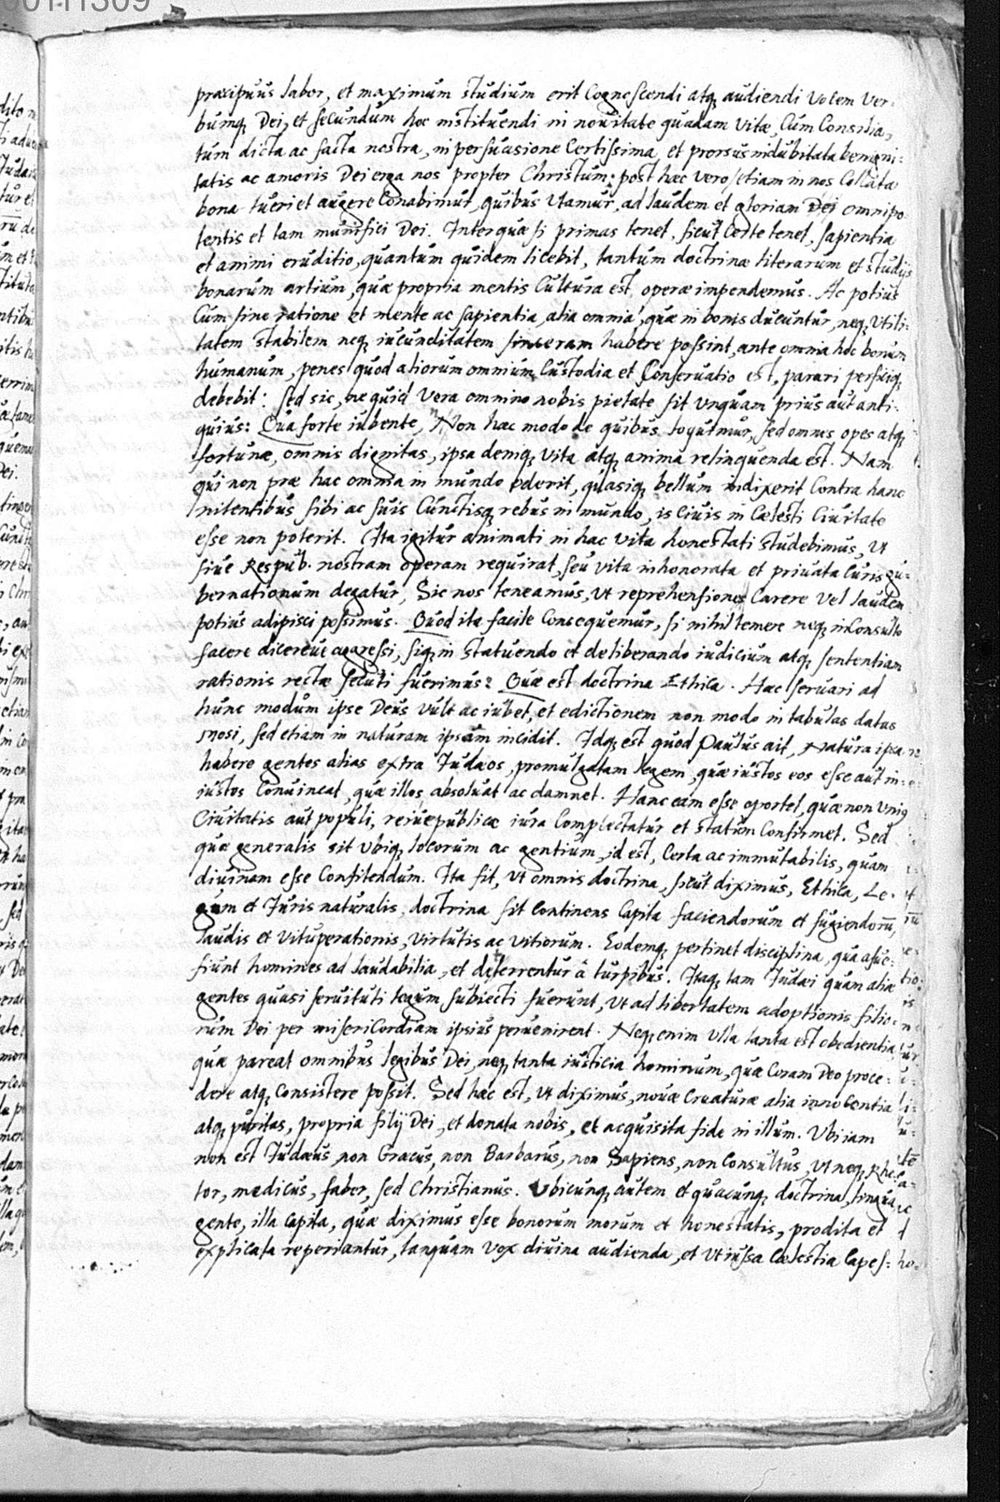 00111309
præcipuus labor, et maximum studium erit Cognoscendi atq; audiendi Vocem Ver-
bumq; Dei, et secundum hoc instituendi in nouitate quadam Vitæ, Cum Consilia,
tum dicta ac facta nostra, in persuasione Certissima, et prorsus indubitata benigni-
tatis ac amoris Dei erga nos propter Christum: post hæc vero etiam in nos Collata
bona tueri et augere Conabimur, quibus Vtamur, ad laudem et gloriam Dei omnipo
tentis et tam munifici Dei. Inter quæ si primas tenet, sicut Certe tenet, sapientia
et animi eruditio, quantum quidem licebit, tantum doctrinæ literarum et studijs
bonarum artium, quæ propria mentis Cultura est, operæ impendemus. Ac potius
Cum sine ratione et mente ac sapientia, alia omnia, quæ in bonis ducuntur, neq; Vtili-
tatem stabilem neq; iucunditatem sinceram habere possint, ante omnia hoc bonum
humanum, penes quod aliorum omnium Custodia et Conseruatio est, parari perficiq;
debebit: sed sic, ne quid Vera omnino nobis pietate sit Vnquam prius aut anti-
quius: Qua forte iubente, Non hæc modo de quibus loquimur, sed omnes opes atq;
fortunæ, omnis dignitas, ipsa deniq; Vita atq; anima relinquenda est. Nam
qui non præ hac omnia in mundo oderit, quasiq; bellum indixerit Contra hanc
nitentibus sibi ac suis Cunctisq; rebus in mundo, is Ciuis in Cælesti Ciuitate
esse non poterit. Ita igitur animati in hac vita honestati studebimus, Vt
siue Respub. nostram operam requirat, seu vita inhonorata et priuata Curis gu-
bernationum degatur, Sic nos teneamus, Vt reprehensione Carere Vel laudem
potius adipisci possimus. Quod ita facile Consequemur, si nihil temere neq; inconsulto
facere dicereue aggressi, siq; in statuendo et deliberando iudicium atq; sententiam
rationis rectæ secuti fuerimus: Quæ est doctrina Ethica. Hæc seruari ad
hunc modum ipse Deus Vult ac iubet, et edictionem non modo in tabulas datas
Mosi, sed etiam in naturam ipsam incidit. Idq; est quod Paulus ait, Natura ipsa
habere gentes alias extra Iudæos, promulgatam legem, quæ iustos eos esse aut in-
iustos Conuincat, quæ illos absoluat ac damnet. Hanc eam esse oportet, quæ non Vnius
Ciuitatis aut populi, reiuepublicæ iura Complectatur et statum Confirmet. Sed
quæ generalis sit Vbiq; locorum ac gentium, id est, Certa ac immutabilis, quam
diuinam esse Confitendum. Ita fit, Vt omnis doctrina, sicut diximus, Ethica, Le-
gum et Iuris naturalis, doctrina sit continens Capita faciendorum et fugiendorū,
laudis et Vituperationis, Virtutis ac Vitiorum. Eodemq; pertinet disciplina, qua asue-
fiunt homines ad laudabilia, et deterrentur à turpibus. Itaq; tam Iudæi quam aliæ
gentes quasi seruituti legum subiecti fuerunt, Vt ad libertatem adoptionis filio-
rum Dei per misericordiam ipsius peruenirent. Neq; enim Vlla tanta est obedientia
quæ pareat omnibus legibus Dei, neq; tanta iusticia hominum, quæ Coram Deo proce-
dere atq; Consistere possit. Sed hæc est, Vt diximus, nouæ Creaturæ alia innocentia
atq; puritas, propria filij Dei, et donata nobis, et acquisita fide in illum. Vbi iam
non est Iudæus, non Græcus, non Barbarus, non Sapiens, non Consultus, Vt neq; Rhe-
tor, medicus, faber, sed Christianus. Vbicunq; autem et quacunq; doctrina, lingua,
gente, illa Capita, quæ diximus esse bonorum morum et honestatis, prodita et
explicata reperiantur, tanquam Vox diuina audienda, et Vt iussa Cælestia Capes-